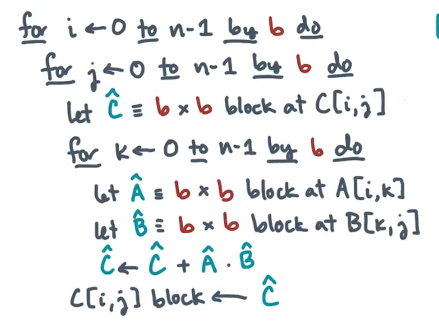 for i ← 0 to n-1 by b do
for j ← 0 to n-1 by b do
let Ĉ ≡ b × b block at C[i,j]
for k ← 0 to n-1 by b do
let Â ≡ b × b block at A[i,k]
let B̂ ≡ b × b block at B[k,j]
Ĉ ← Ĉ + Â · B̂
C[i,j] block ← Ĉ